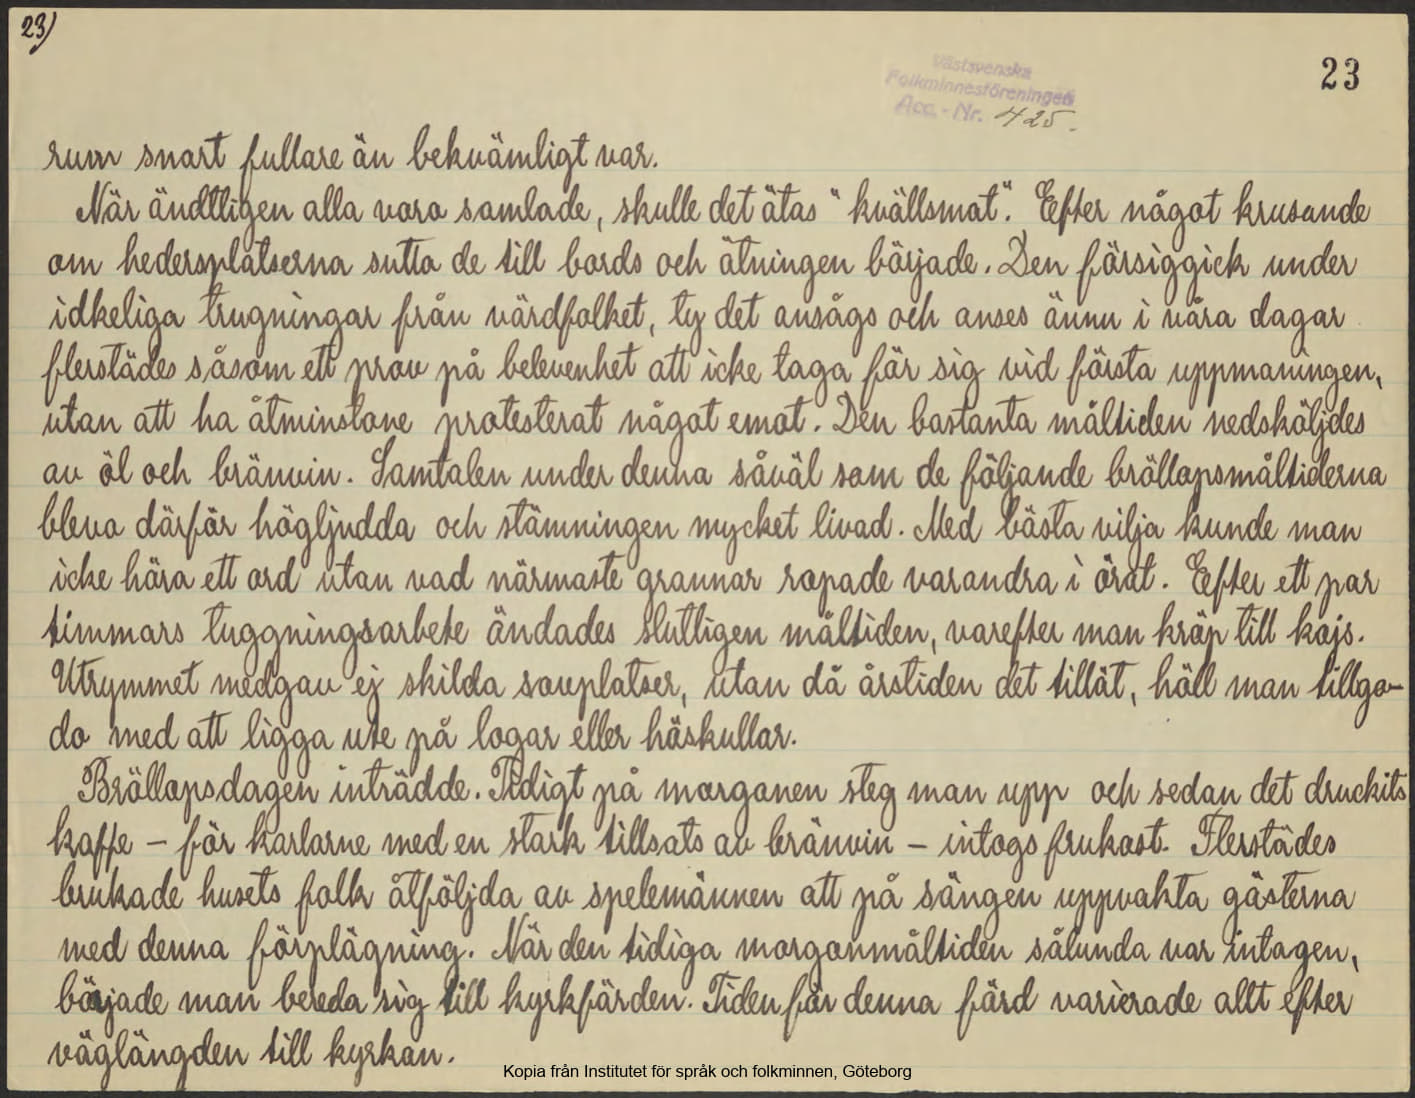 23)
23
Västsvenska
Folkminnesföreningen
Acc.-Nr. 425.
rum snart fullare än bekvämligt var.
När ändtligen alla voro samlade, skulle det ätas "kvällsmat". Efter något krusande
om hedersplatserna sutto de till bords och ätningen började. Den försiggick under
idkeliga trugningar från värdfolket, ty det ansågs och anses ännu i våra dagar
flerstädes såsom ett prov på belevenhet att icke taga för sig vid första uppmaningen,
utan att ha åtminstone protesterat något emot. Den bastanta måltiden nedsköljdes
av öl och brännvin. Samtalen under denna såväl som de följande bröllopsmåltiderna
blevo därför högljudda och stämningen mycket livad. Med bästa vilja kunde man
icke höra ett ord utan vad närmaste grannar ropade varandra i örat. Eefter ett par
timmars tuggningsarbete ändades slutligen måltiden, varefter man kröp till kojs.
Utrymmet medgav ej skilda sovplatser, utan då årstiden det tillät, höll man tillgo-
do med att ligga ute på logar eller höskullar.
Bröllopsdagen inträdde. Tidigt på morgonen steg man upp och sedan det druckits
kaffe – för karlarne med en stark tillsats av brännvin – intogs frukost. Flerstädes
brukade husets folk åtföljda av spelemännen att på sängen uppvakta gästerna
med denna förplägning. När den tidiga morgonmåltiden sålunda var intagen,
började man bereda sig till kyrkfärden. Tiden för denna färd varierade allt efter
väglängden till kyrkan.
Kopia från Institutet för språk och folkminnen, Göteborg